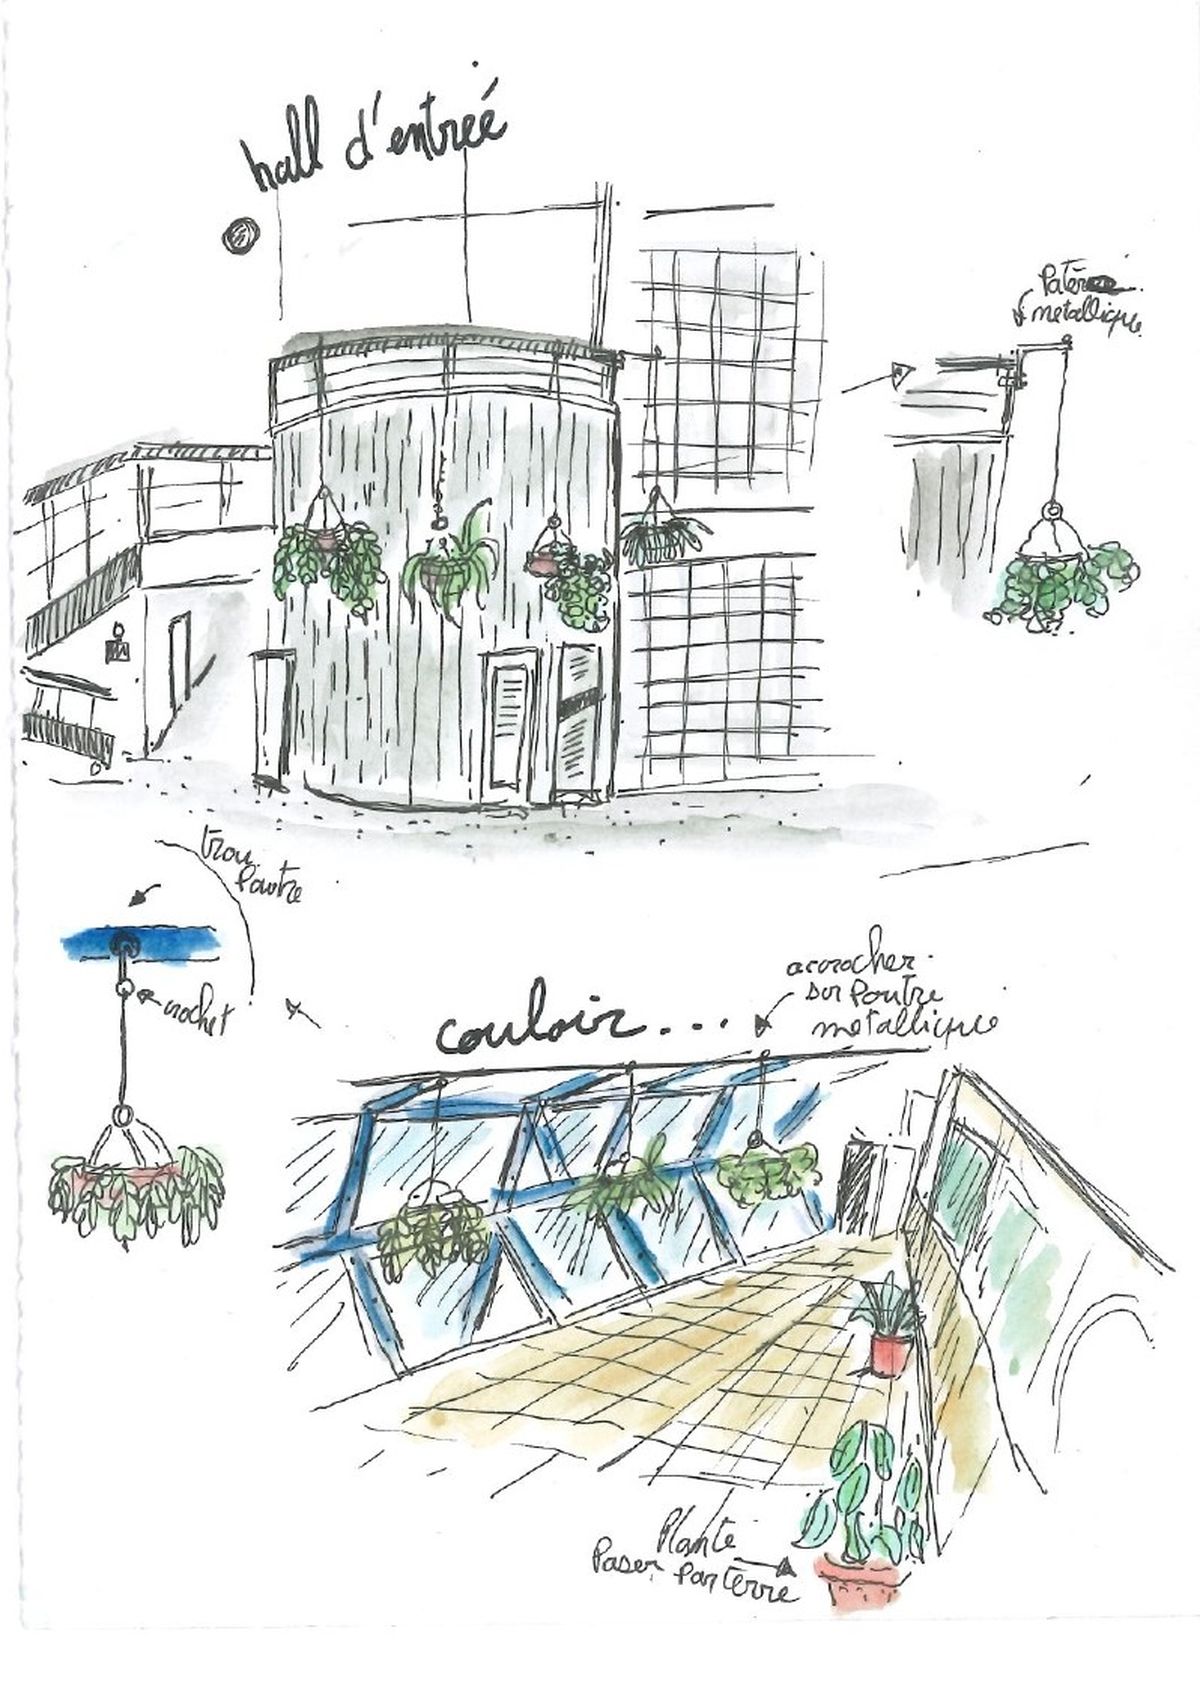 hall d'entreé
Patère
metallique
trou
Poutre
crochet
couloir...
accrocher
sur Poutre
metallique
Plante
Paser Parterre